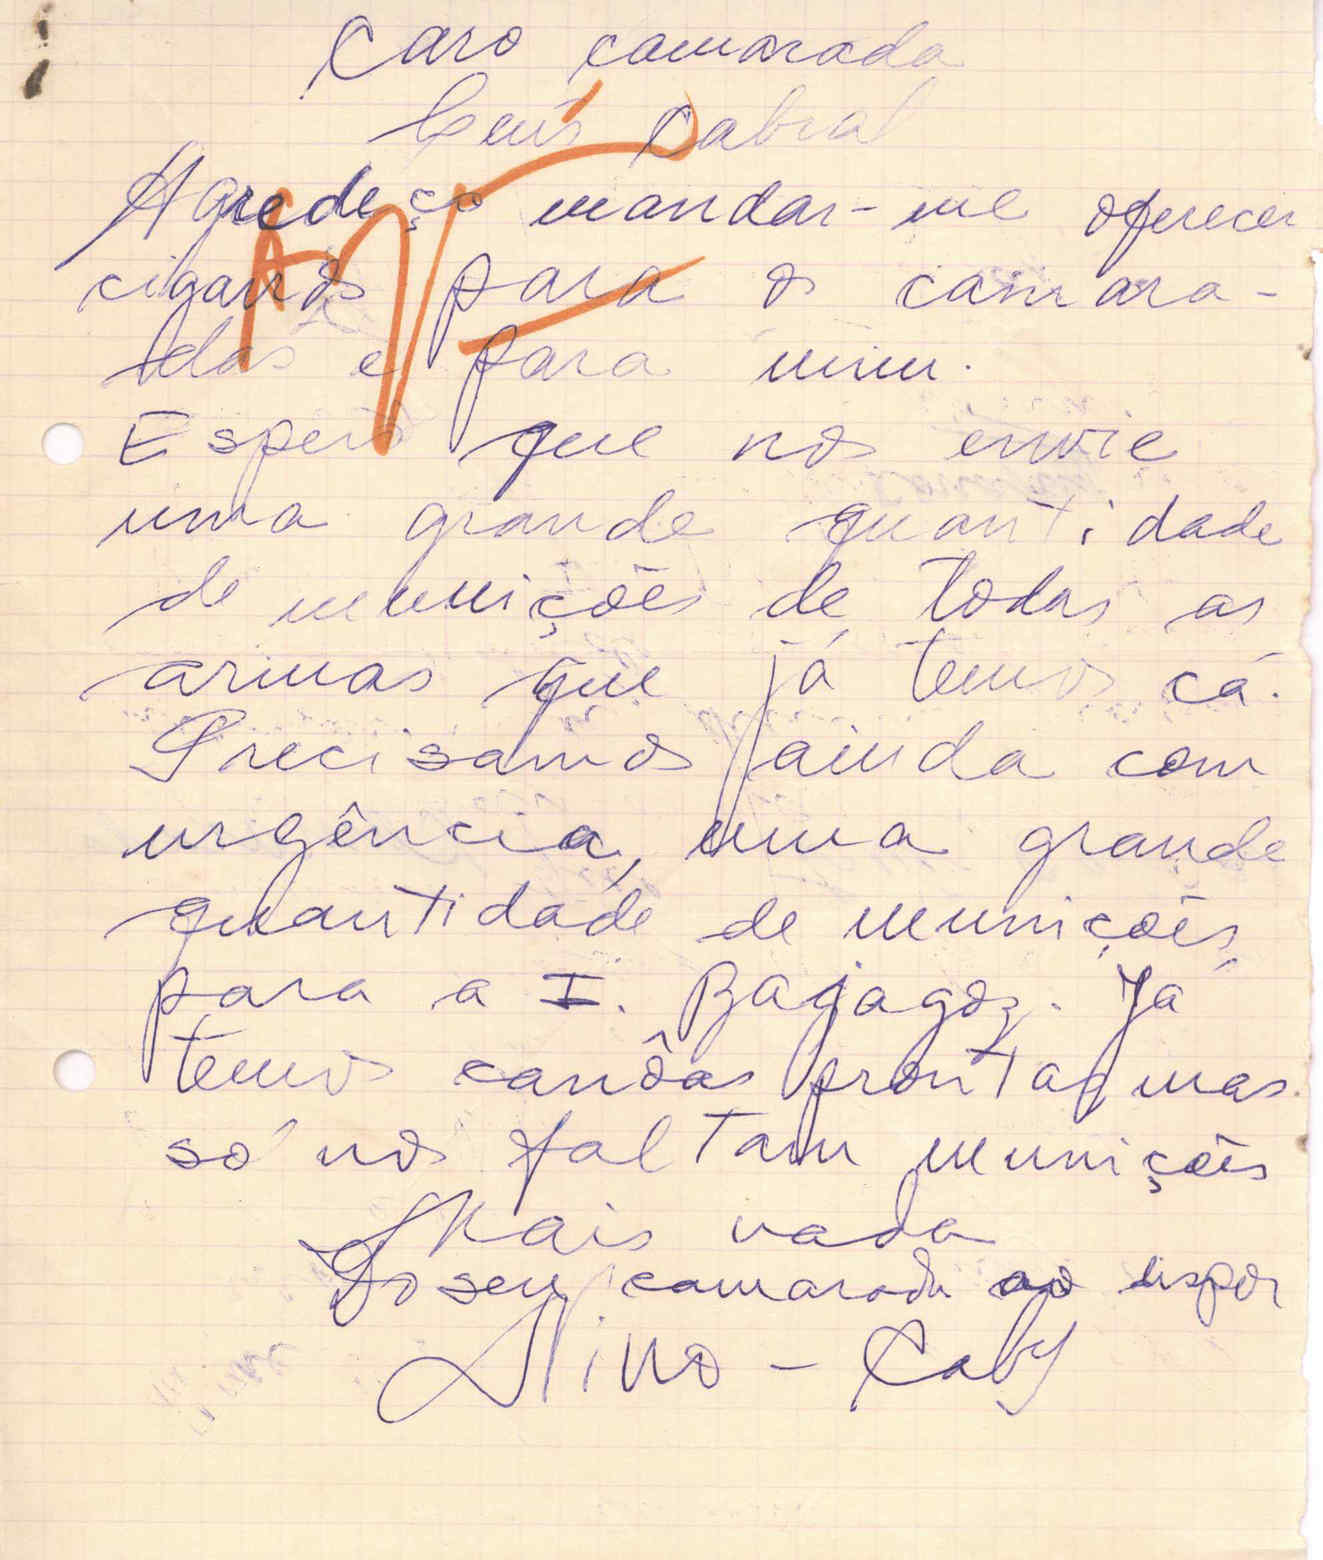 Caro camarada
Luís Cabral
Agredeço mandar-me oferecer
cigaros para os camara-
das e para mim.
Espero que nos envie
uma grande quantidade
de munições de todas as
armas que já temos cá.
Precisamos ainda com
urgência, uma grande
quantidade de munições,
para a I. Bajagoz. Já
temos canôas prontas mas
só nos faltam munições
Mais nada
Do seu camarada ao dispor
Nino - Caby